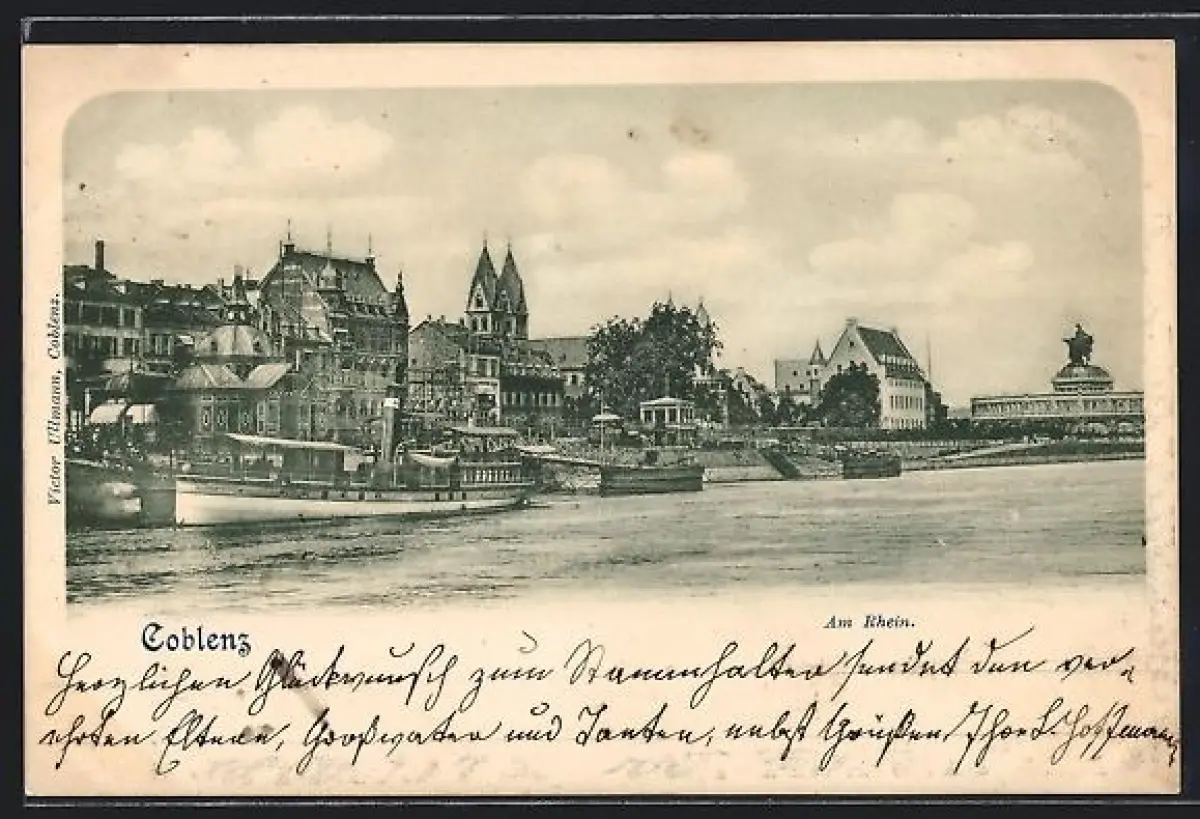 Victor Ullmann, Coblenz.
Coblenz
Am Rhein.
Herzlichen Glückwunsch zum Stammhalter sendet den ver-
ehrten Eltern, Großvater und Tanten, nebst Grüßen Ihr L. Hoffmann